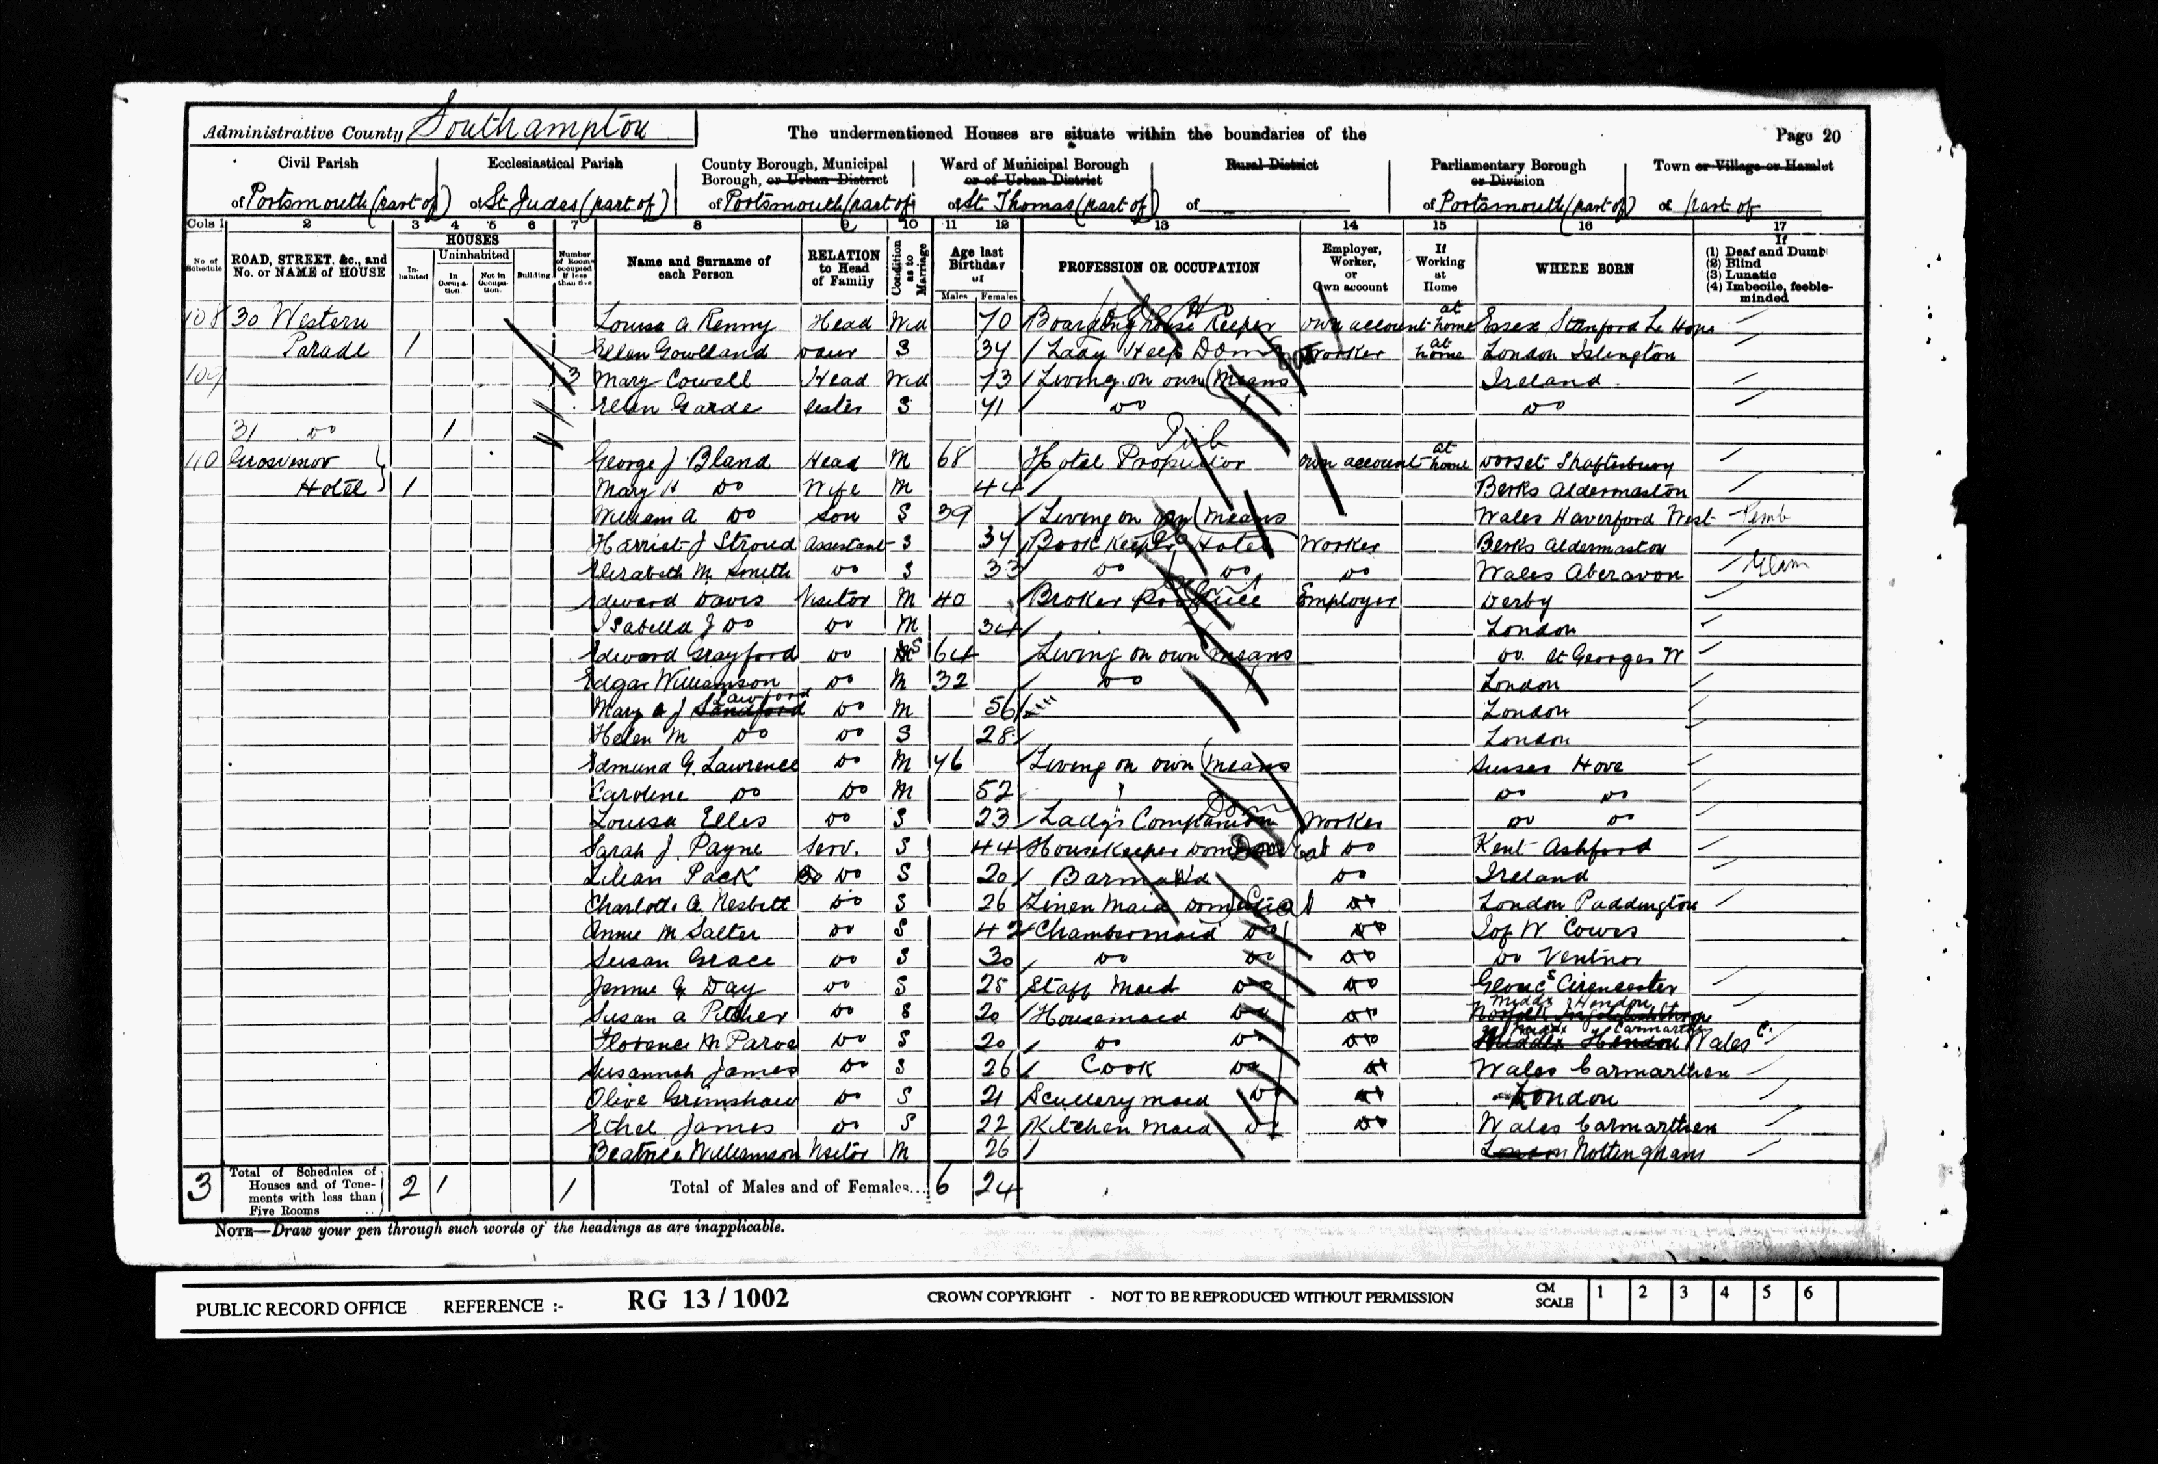 Administrative County Southampton
The undermentioned Houses are situate within the boundaries of the
Page 20
Civil Parish
of Portsmouth (part of)
Ecclesiastical Parish
of St Judes (part of)
County Borough, Municipal
Borough, or Urban District
of Portsmouth (part of)
Ward of Municipal Borough
or of Urban District
of St Thomas (part of)
Rural District
of
Parliamentary Borough
or Division
of Portsmouth (part of)
Town or Village or Hamlet
of part of
Cols 1 2 3 4 5 6 7 8 9 10 11 12 13 14 15 16 17
No. of Schedule
ROAD, STREET, &c., and No. or NAME of HOUSE
HOUSES
Inhabited
Uninhabited
In Occupation
Not in Occupation.
Building
Number of Rooms occupied if less than five
Name and Surname of each Person
RELATION to Head of Family
Condition as to Marriage
Age last Birthday of
Males Females
PROFESSION OR OCCUPATION
Employer, Worker, or Own account
If Working at Home
WHERE BORN
If
(1) Deaf and Dumb
(2) Blind
(3) Lunatic
(4) Imbecile, feeble-minded
108 30 Western Louisa A Renny Head Wd 70 Boarding House Keeper own account at home Essex Stanford Le Hope
Parade 1 Ellen Gowlland S 34 Lady Help Dom Worker at home London Islington
109 3 Mary Cowell Head Wd 73 Living on own means Ireland
Ellen Garde Sister S 71 Do Do
31 Do 1
110 Grosvenor George J Bland Head M 68 Hotel Proprietor own account at home Dorset Shaftesbury
Hotel 1 Mary H Do Wife M 44 Berks Aldermaston
William A Do Son S 39 Living on own means Wales Haverford West Pemb
Harriet J Stroud Assistant S 34 Book Keeper Hotel Worker Berks Aldermaston
Elizabeth M Smith Do S 33 Do Do Do Wales Aberavon Glam
Edward Davis Visitor M 40 Broker Employer Derby
Isabella J Do Do M 34 London
Edward Do S 64 Living on own means Do St Georges W
Edgar Williamson Do M 32 Do London
Mary J Sandford Do M 56 London
Helen M Do Do S 28 London
Edmund G. Lawrence Do M 46 Living on own means Sussex Hove
Caroline Do Do M 52 Do Do
Louisa Elles Do S 23 Lady's Companion Dom Worker Do Do
Sarah J. Payne Serv. S 44 Housekeeper Dom Do Kent Ashford
Lilian Pack Do S 20 Barmaid Do Ireland
Charlotte A Nesbitt Do S 26 Linen Maid Domestic Do London Paddington
Annie M Salter Do S 42 Chambermaid Do Do I of W Cowes
Susan Grace Do S 30 Do Do Do Do Ventnor
Jennie G Day Do S 25 Staff Maid Do Do Glouc Cirencester
Susan A Pitcher Do S 20 Housemaid Do Do Middx Hendon
Florence M Do S 20 Do Do Do Middx Hendon Carmarthen Wales
Susannah James Do S 26 Cook Do Do Wales Carmarthen
Olive Grimshaw Do S 21 Scullery maid Do Do London
Ethel James Do S 22 Kitchen Maid Do Do Wales Carmarthen
Beatrice Williamson Visitor M 26 London Nottingham
3 Total of Schedules of Houses and of Tenements with less than Five Rooms 2 1 1 Total of Males and of Females... 6 24
NOTE—Draw your pen through such words of the headings as are inapplicable.
PUBLIC RECORD OFFICE REFERENCE :- RG 13 / 1002 CROWN COPYRIGHT - NOT TO BE REPRODUCED WITHOUT PERMISSION CM SCALE 1 2 3 4 5 6